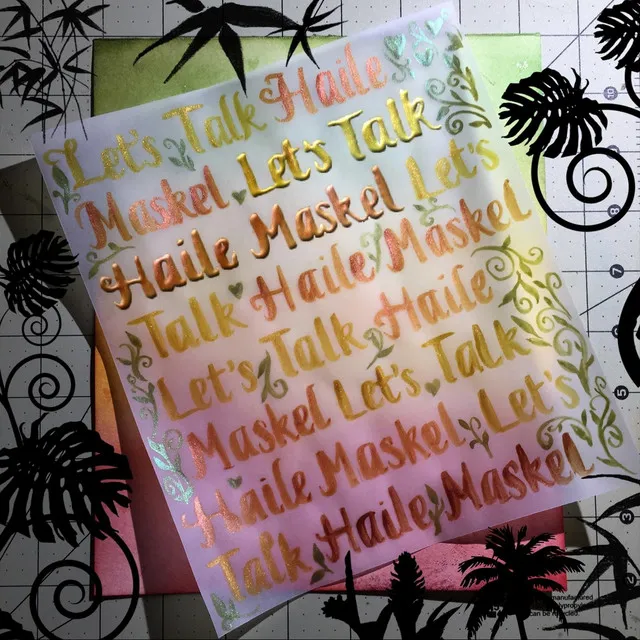 Let's Talk Haile
Maskel Let's Talk
Haile Maskel Let's
Talk Haile Maskel
Let's Talk Haile
Maskel Let's Talk
Haile Maskel Let's
Talk Haile Maskel
7
5
manufactured